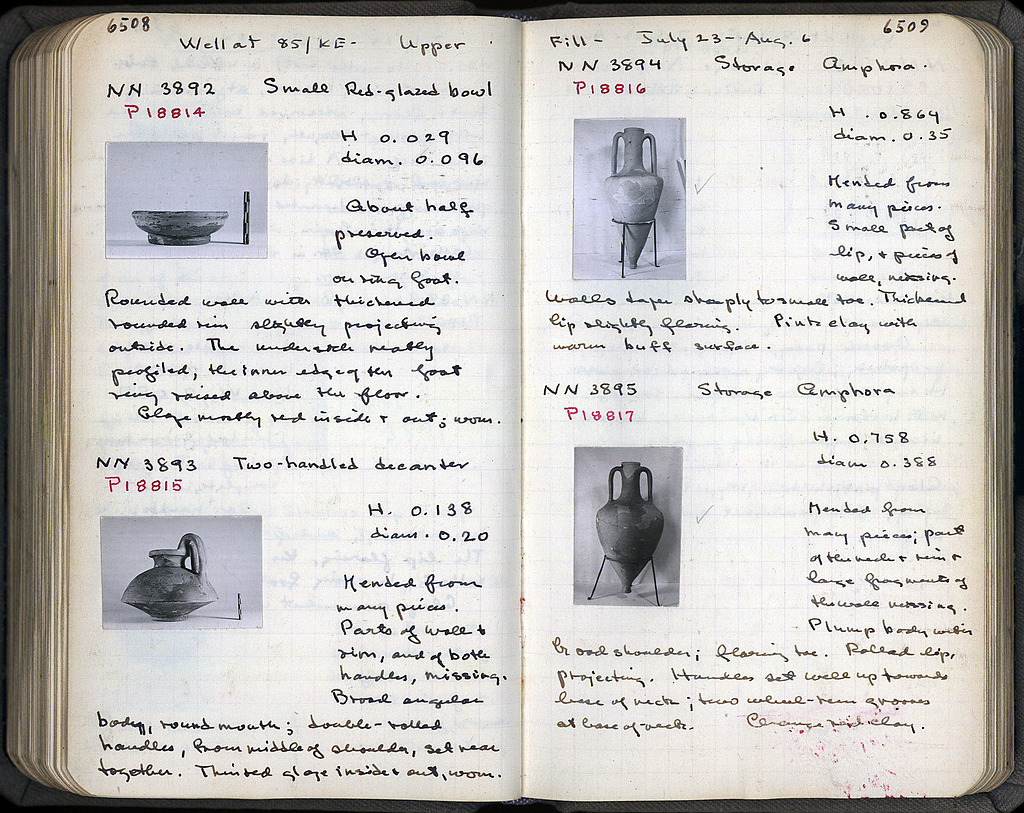 6508
Well at 85/KE- Upper
NN 3892 Small Red-glazed bowl
P18814
H 0.029
diam. 0.096
About half
preserved.
Open bowl
on ring foot.
Rounded wall with thickened
rounded rim slightly projecting
outside. The underside neatly
profiled; the inner edge of the foot
ring raised above the floor.
Glaze mostly red inside & out; worn.
NN 3893 Two-handled decanter
P18815
H. 0.138
diam. 0.20
Mended from
many pieces.
Parts of wall &
rim, and of both
handles, missing.
Broad angular
body, round mouth; double-rolled
handles, from middle of shoulder, set near
together. Thin red glaze inside & out, worn.
6509
Fill - July 23 - Aug. 6
NN 3894 Storage Amphora.
P18816
H. 0.864
diam. 0.35
Mended from
many pieces.
Small part of
lip, & pieces of
wall, missing.
Walls taper sharply to small toe. Thickened
lip slightly flaring. Pink clay with
warm buff surface.
NN 3895 Storage Amphora
P18817
H. 0.758
diam 0.388
Mended from
many pieces; part
of the neck & rim &
large fragments of
the wall missing.
Plump body with
broad shoulder; flaring toe. Rolled lip,
projecting. Handles set well up towards
base of neck; two wheel-run grooves
at base of neck. Orange red clay.